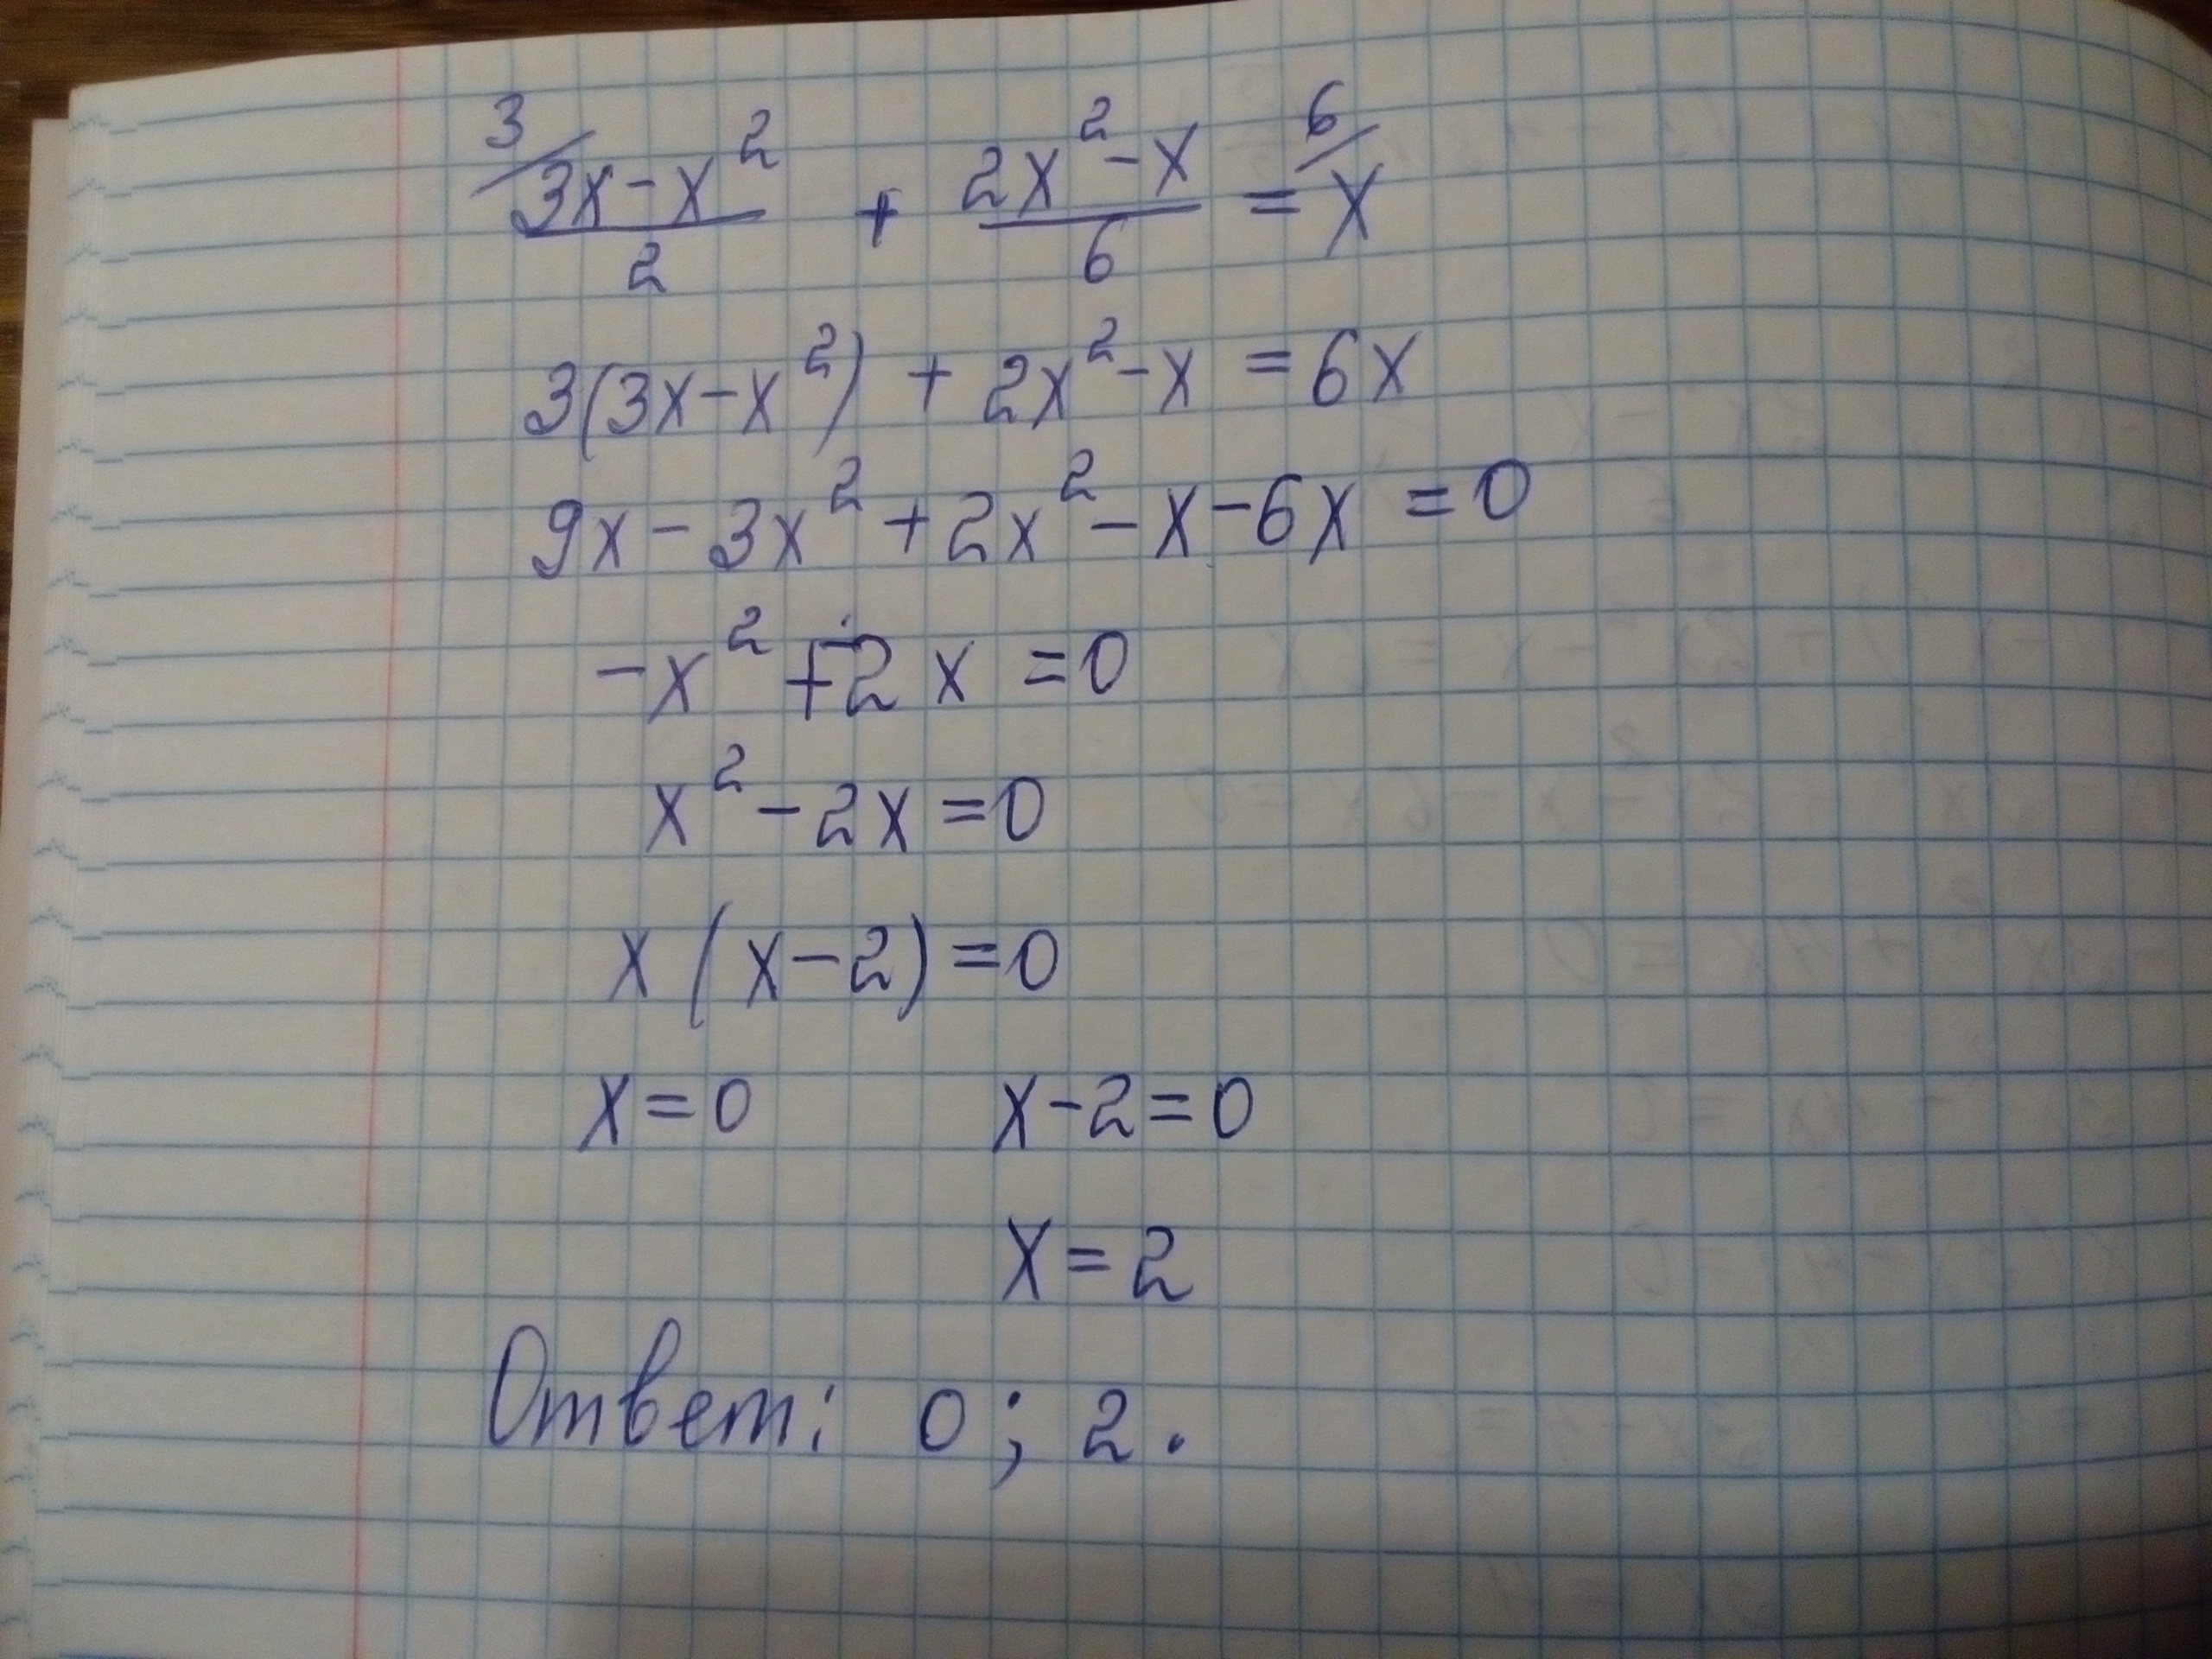 3/ (3x-x²)/2 + (2x²-x)/6 = 6/ x
3(3x-x²) + 2x²-x = 6x
9x - 3x² + 2x² - x - 6x = 0
-x² + 2x = 0
x² - 2x = 0
x (x-2) = 0
x = 0 x-2 = 0
x = 2
Ответ: 0; 2.